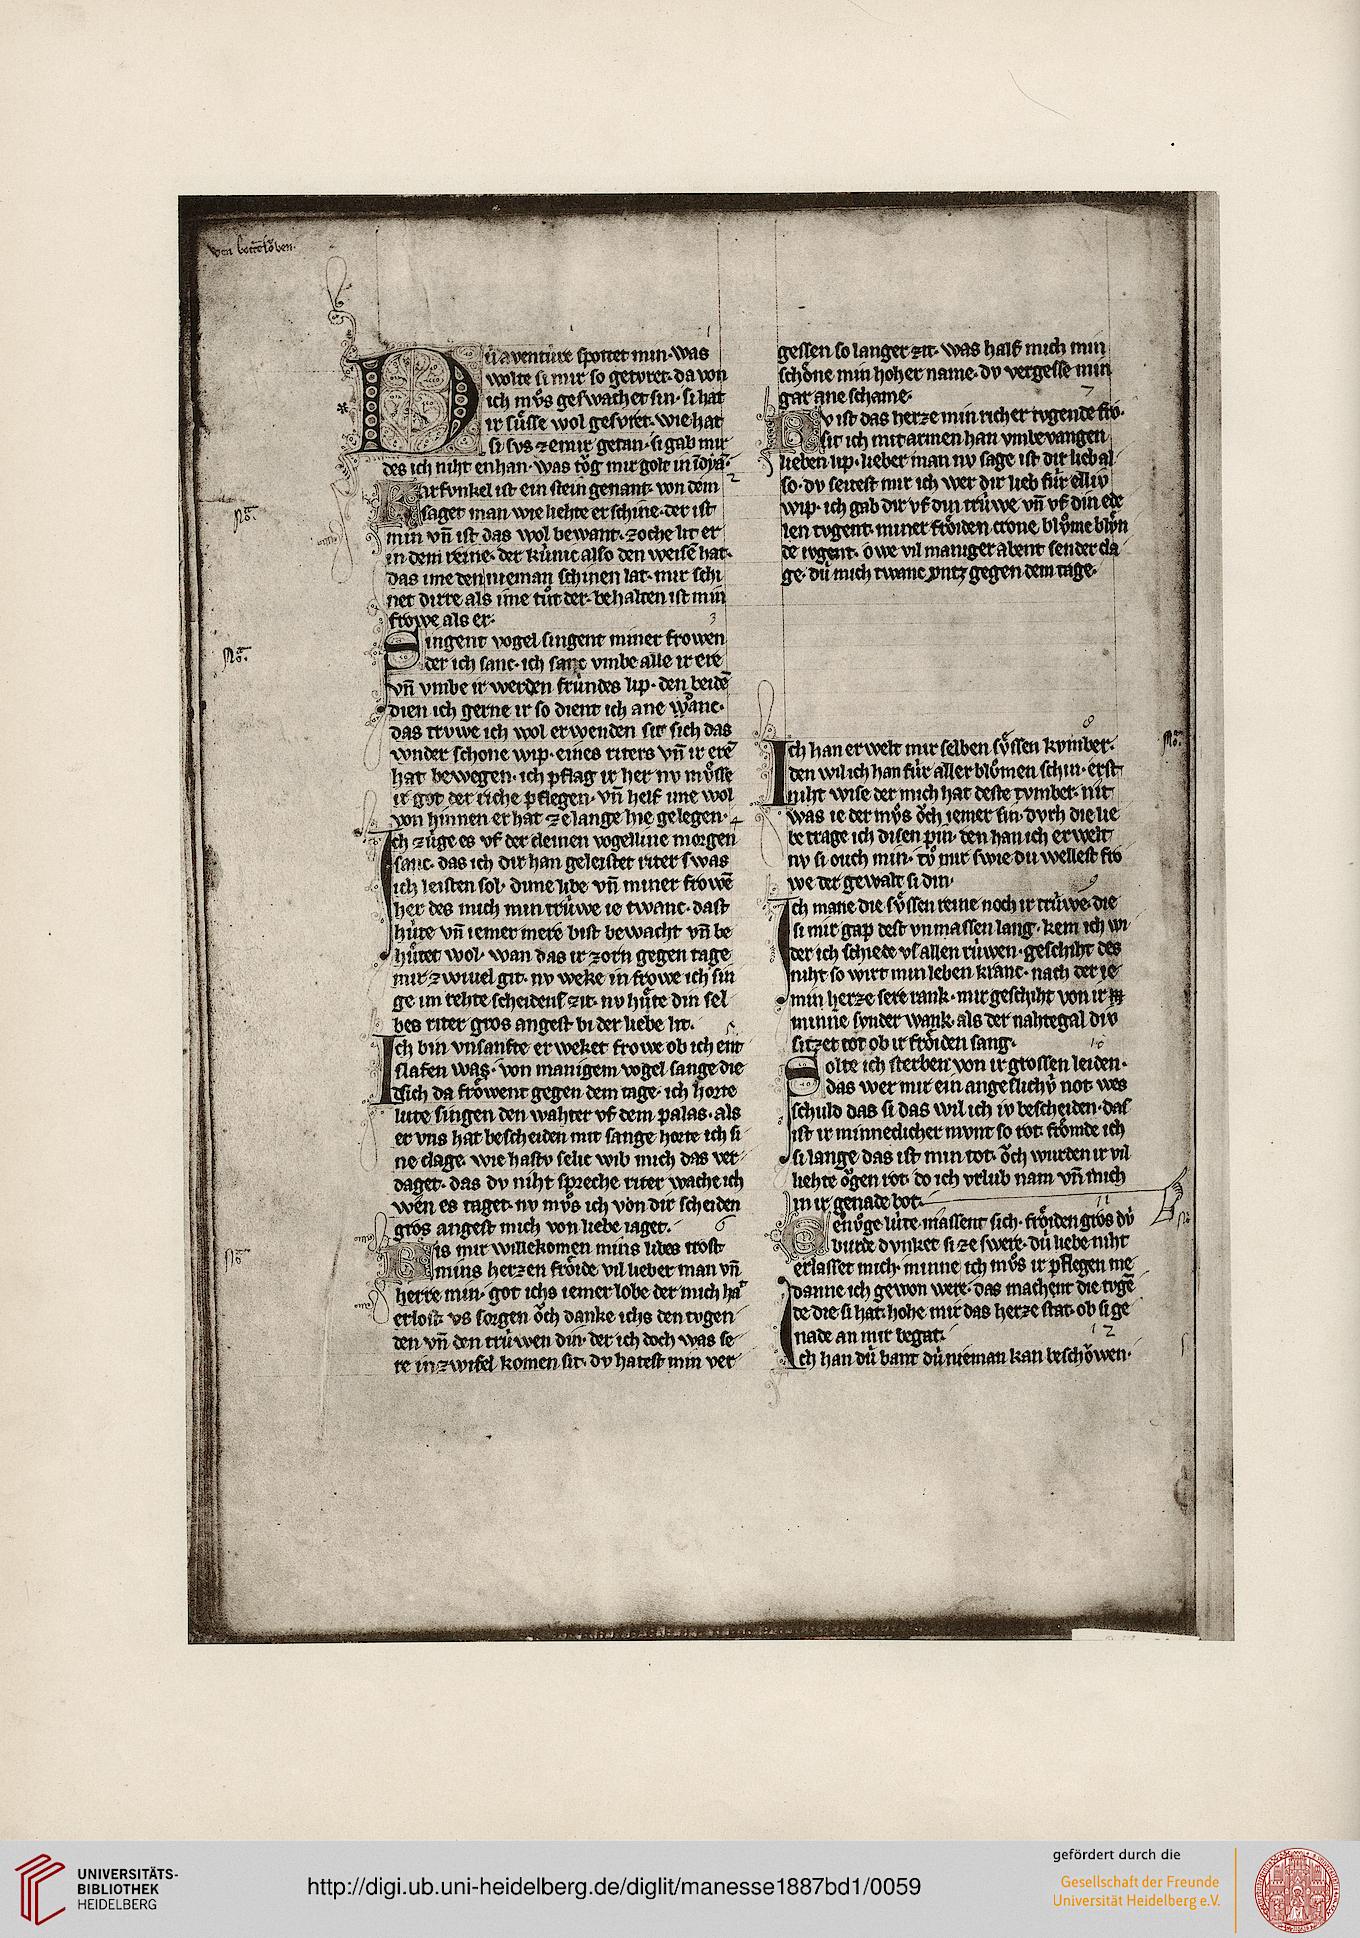 von bottēlôben.
Dü aventüre spottet min· was
wolte si mir so getvret· da von
ich mv̊s geswachet sin· si hat
ir sv̊sse wol gesvret· wie hat
si svs zemir getan· si gab mir
des ich niht enhan· was tǒg mir golt in īdyā·
2
Karfvnkel ist ein stein genant· von dem
saget man wie liehte er schine· der ist
min vn̄ ist das wol bewant· zoche lit er
in dem rine· der kúnic also den weisē hat·
das ime den nieman schinen lat· mir schi
net dirre als ime tůt der· behalten ist min
frowe als er·
3
Singent vogel singent miner frowen
der ich sanc· ich sanc vmbe alle ir ere
vn̄ vmbe ir werden frúndes lip· den beidē
dien ich gerne ir so dient ich ane wanc·
das trvwe ich wol erwenden sit sich das
wnder schone wip· eines riters vn̄ ir erē
hat bewegen· ich pflag ir her nv mv̊sse
ir got der riche pflegen· vn̄ helf ime wol
von hinnen er hat zelange hie gelegen·
4
Ich zúge es vf der cleinen vogelline morgen
sanc· das ich dir han geleistet riter swas
ich leisten sol· dime libe vn̄ miner frowē
her des mich min trúwe ie twanc· dast
hůte vn̄ iemer mere bist bewacht vn̄ be
hůtet wol· wan das ir zorn gegen tage
mir zwiuel git· nv weke in frowe ich sin
ge im rehte scheidens zit· nv hůte din sel
bes riter gros angest bi der liebe lit·
5
Ich bin vnsanfte erweket frowe ob ich ent
slafen was· von manigem vogel sange die
sich da frǒwent gegen dem tage· ich horte
lute singen den wahter vf dem palas· als
er vns hat bescheiden mit sange horte ich si
ne clage· wie hastv selic wib mich das ver
daget· das dv niht spreche riter wache ich
wen es taget· nv mv̊s ich von dir scheiden
gros angest mich von liebe iaget·
6
Bis mir willekomen mins libes trost
mins herzen frǒide vil lieber man vn̄
herre min· got ichs iemer lobe der mich hat
erlost· vs sorgen ǒch danke ichs den tvgen
den vn̄ den trúwen din· der ich doch was se
re in zwifel komen sit· dv hatest min ver
gessen so langer zit· was half mich min
schǒne min hoher name· dv vergesse min
gar ane schame·
7
Nv ist das herze min richer tvgende fro·
sit ich mit armen han vmbevangen
lieben lip· lieber man nv sage ist dir lieb al
so· dv seitest mir ich wer dir lieb fúr elliv
wip· ich gab dir vf din trúwe vn̄ vf din ede
len tvgent· miner frǒiden crone blůme blůn
de ivgent· owe vil maniger abent sender cla
ge· dú mich twanc vntz gegen dem tage·
8
Ich han erwelt mir selben sv̊ssen kvmber·
den wil ich han fúr aller blůmen schin· erst
niht wise der mich hat deste tvmber· nit
was ie der mv̊s ǒch iemer sin· dvrh die lie
be trage ich disen pin· den han ich erwelt
nv si ouch min· tů mir swie du wellest fro
we der gewalt si din·
9
Ich mane die sv̊ssen reine noch ir trúwe· die
si mir gap dest vnmassen lang· kem ich wi
der ich schiede vs allen rúwen· geschiht des
niht so wirt min leben kranc· nach der ie
min herze sere rank· mir geschiht von ir
minne svnder wank als der nahtegal div
sitzet tot ob ir frǒiden sang·
10
Solte ich sterben von ir grossen leiden·
das wer mir ein angeslichv́ not· wes
schuld das si das wil ich iv bescheiden· das
ist ir minneclicher mvnt so rot· frǒmde ich
si lange das ist min tot· ǒch wurden ir vil
liehte ǒgen rot· do ich vrlub nam vn̄ mich
in ir genade bot·
11
Genv̊ge lúte massent sich· frǒiden gros dv́
burde dvnket si ze swere· dú liebe niht
erlasset mich· minne ich mv̊s ir pflegen me
danne ich gewon were· das machent die tvgē
de die si hat· hohe mir das herze stat· ob si ge
nade an mir begat·
12
Ich han dú bant dú nieman kan beschǒwen·
UNIVERSITÄTS-
BIBLIOTHEK
HEIDELBERG
http://digi.ub.uni-heidelberg.de/diglit/manesse1887bd1/0059
gefördert durch die
Gesellschaft der Freunde
Universität Heidelberg e.V.